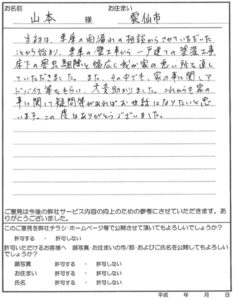 お名前
お住まい
山本 様 雲仙市
当初は、車庫の雨漏れの相談からさせていただいた
ことから始まり、車庫の壁工事から一戸建ての塗装工事
床下の害虫駆除と幅広く我が家の悪い所を直し
ていただきました。また、その中でも、家の事に関し
アドバイス等をもらい、大変助かりました。これからも家の
事に関して疑問等があればお世話になりたいと思
います。この度はありがとうございました。
ご意見は今後の弊社サービス内容の向上のための参考にさせていただきます。あ
りがとうございました。
このご意見を弊社チラシ・ホームページ等で公開させて頂いてもよろしいでしょうか?
許可する ・ 許可しない
許可いただけるお客様へ 顔写真・お住まいの市/郡・およびご氏名を公開してもよろしい
でしょうか?
顔写真 許可する ・ 許可しない
お住まい 許可する ・ 許可しない
氏名 許可する ・ 許可しない
平成 年 月 日